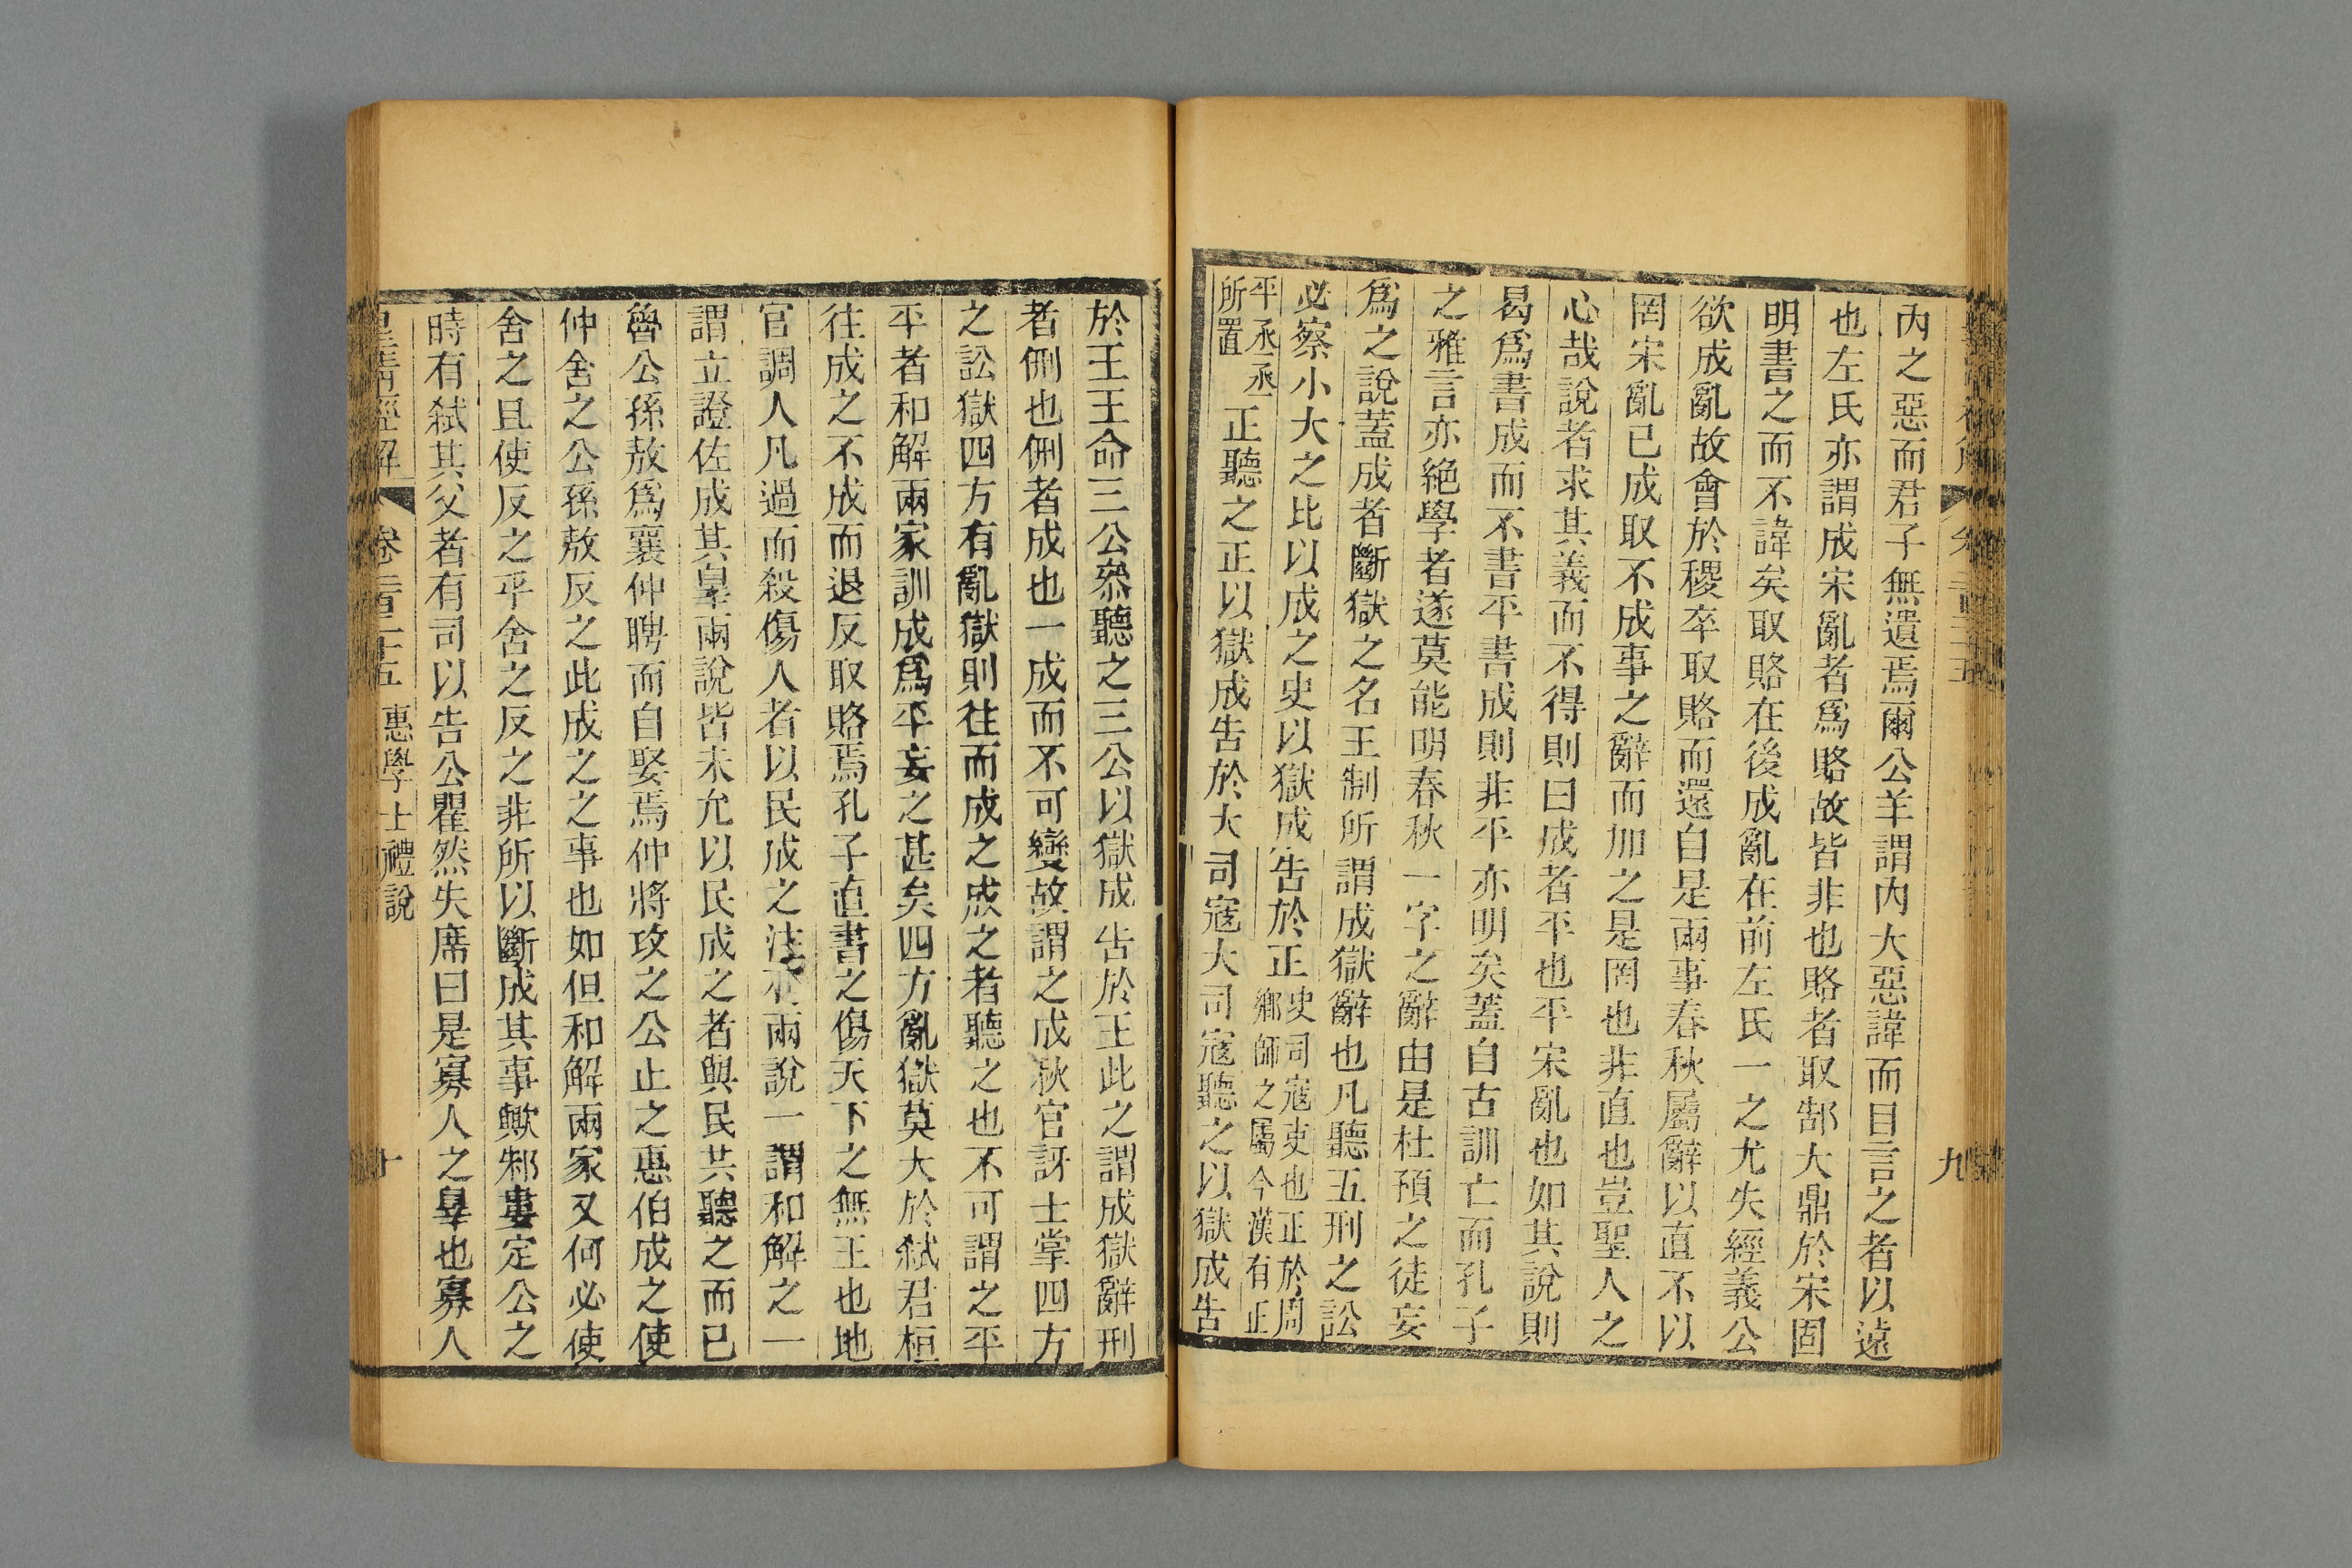 內之惡而君子無遺焉爾公羊謂內大惡諱而目言之者以遠
也左氏亦謂成宋亂者爲賂故皆非也賂者取郜大鼎於宋固
明書之而不諱矣取賂在後成亂在前左氏一之尤失經義公
欲成亂故會於稷卒取賂而還自是兩事春秋屬辭以直不以
罔宋亂已成取不成事之辭而加之是罔也非直也豈聖人之
心哉說者求其義而不得則曰成者平也平宋亂也如其說則
曷爲書成而不書平書成則非平亦明矣蓋自古訓亡而孔子
之雅言亦絕學者遂莫能明春秋一字之辭由是杜預之徒妄
爲之說蓋成者斷獄之名王制所謂成獄辭也凡聽五刑之訟
必察小大之比以成之史以獄成告於正史司寇吏也正於周
鄉師之屬今漢有正
平丞丞
所置正聽之正以獄成告於大司寇大司寇聽之以獄成告
九
於王王命三公參聽之三公以獄成告於王此之謂成獄辭刑
者侀也侀者成也一成而不可變故謂之成秋官訝士掌四方
之訟獄四方有亂獄則往而成之成之者聽之也不可謂之平
平者和解兩家訓成爲平妄之甚矣四方亂獄莫大於弒君桓
往成之不成而退反取賂焉孔子直書之傷天下之無王也地
官調人凡過而殺傷人者以民成之注有兩說一謂和解之一
謂立證佐成其辠兩說皆未允以民成之者與民共聽之而已
魯公孫敖爲襄仲聘而自娶焉仲將攻之公止之惠伯成之使
仲舍之公孫敖反之此成之之事也如但和解兩家又何必使
舍之且使反之乎舍之反之非所以斷成其事歟邾婁定公之
時有弒其父者有司以告公瞿然失席曰是寡人之辠也寡人
皇清經解 卷二百二十五 惠學士禮說 十